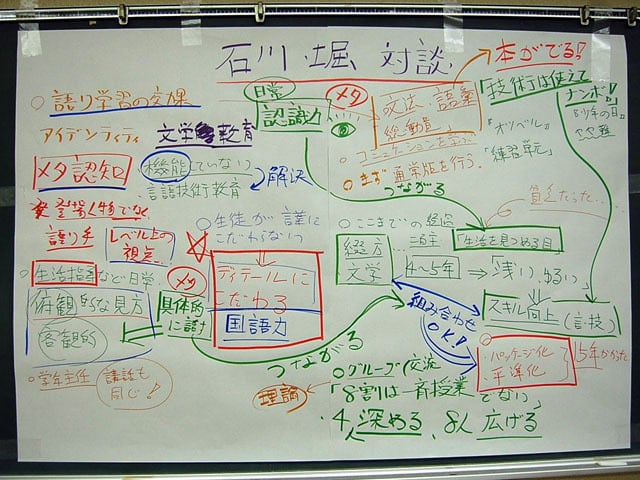 石川 堀 対談
本がでる!
日常
認識力
メタ
文法、語彙
総動員
「技術」は使えて
ナンボ!
「オツベル」
「練習単元」
○語り学習の効果
アイデンティティ
文学教育
メタ認知
機能していない
言語技術教育
解決
○まず通常版を行う。
つながる
登場人物でなく
語り手
レベル上の
視点
○生徒が
こだわらないつ
貧乏だった…
○ここまでの
綴方
文学
「生活を見つめる目」
4〜5年
⇒「浅い、ゆるい」
○生活指導など日常
俯観的な見方
客観的
メタ
具体的
に話す
ディテールに
こだわる
国語力
組み合わせ
OK!
スキル向上(言・技)
・パッケージ化
・平準化
5年かかった
つながる
○学年主任
講話も
同じ!
○グループ(交流
「8割は一斉授業
でない」
理論
4人深める、8人広げる